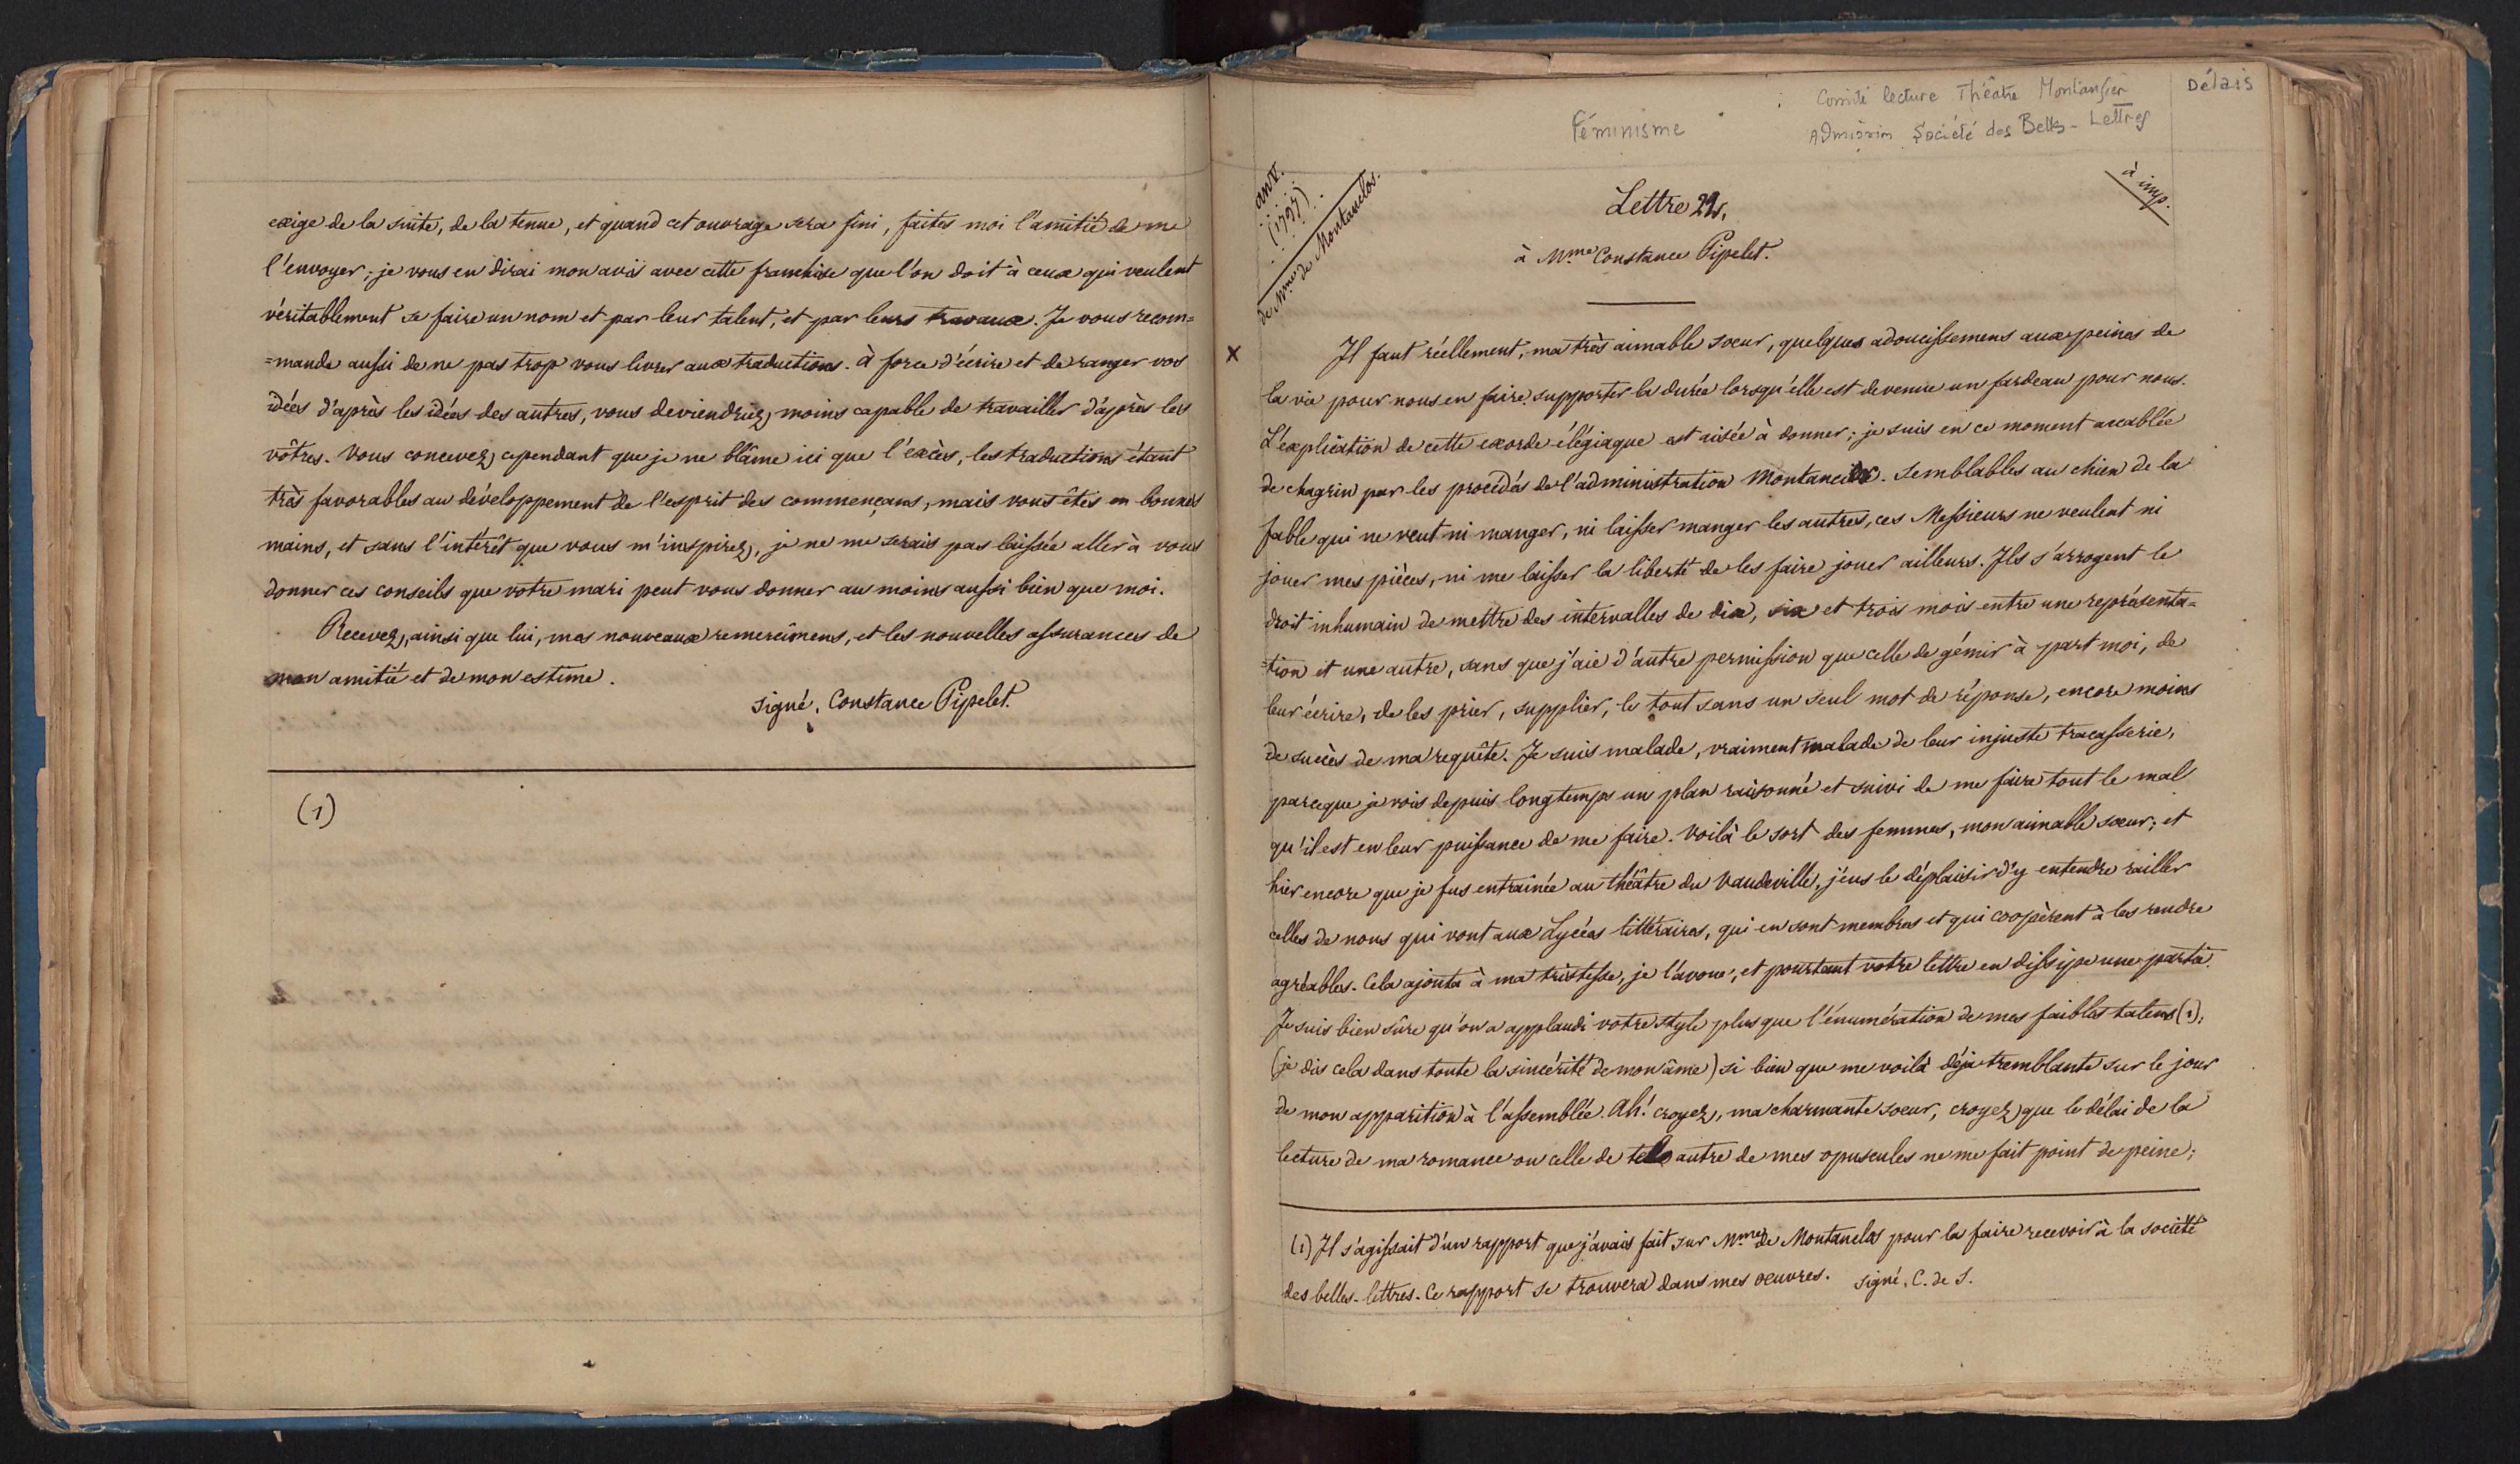 exige de la suite, de la tenue, et quand cet ouvrage sera fini, faites moi l'amitié de me
l'envoyer; je vous en dirai mon avis avec cette franchise que l'on doit à ceux qui veulent
véritablement se faire un nom et par leur talent, et par leurs travaux. Je vous recom=
=mande aussi de ne pas trop vous livrer aux traductions. à force d'écrire et de ranger vos
idées d'après les idées des autres, vous deviendriez moins capable de travailler d'après les
vôtres. Vous concevez cependant que je ne blâme ici que l'excès, les traductions étant
très favorables au développement de l'esprit des commençans, mais vous êtes en bonnes
mains, et sans l'intérêt que vous m'inspirez, je ne me serais pas laissée aller à vous
donner ces conseils que votre mari peut vous donner au moins aussi bien que moi.
Recevez, ainsi que lui, mes nouveaux remercîmens, et les nouvelles assurances de
mon amitié et de mon estime.
signé, Constance Pipelet.
(1)
Féminisme
Comité lecture Théâtre Montansier
Admission Société des Belles-Lettres
Délais
an V.
(1797)
de Mme de Montanclos.
à imp.
Lettre 22s.
à Mme Constance Pipelet.
x
Il faut réellement, ma très aimable soeur, quelques adoucissemens aux peines de
la vie pour nous en faire supporter la durée lorsqu'elle est devenue un fardeau pour nous.
L'explication de cette exorde élégiaque est aisée à donner; je suis en ce moment accablée
de chagrin par les procédés de l'administration Montansier. Semblables au chien de la
fable qui ne veut ni manger, ni laisser manger les autres, ces Messieurs ne veulent ni
jouer mes pièces, ni me laisser la liberté de les faire jouer ailleurs. Ils s'arrogent le
droit inhumain de mettre des intervalles de dix, six et trois mois entre une représenta=
=tion et une autre, sans que j'aie d'autre permission que celle de gémir à part moi, de
leur écrire, de les prier, supplier, le tout sans un seul mot de réponse, encore moins
de succès de ma requête. Je suis malade, vraiment malade de leur injuste tracasserie,
parceque je vois depuis longtemps un plan raisonné et suivi de me faire tout le mal
qu'il est en leur puissance de me faire. Voilà le sort des femmes, mon aimable soeur; et
hier encore que je fus entrainée au théâtre du Vaudeville, j'eus le déplaisir d'y entendre railler
celles de nous qui vont aux Lycées littéraires, qui en sont membres et qui coopèrent à les rendre
agréables. Cela ajouta à ma tristesse, je l'avoue, et pourtant votre lettre en dissipe une partie.
Je suis bien sûre qu'on a applaudi votre style plus que l'énumération de mes faibles talens (1),
(je dis cela dans toute la sincérité de mon âme) si bien que me voilà déjà tremblante sur le jour
de mon apparition à l'assemblée. Ah! croyez, ma charmante soeur, croyez que le délai de la
lecture de ma romance ou celle de tel autre de mes opuscules ne me fait point de peine;
(1) Il s'agissait d'un rapport que j'avais fait sur Mme de Montanclos pour la faire recevoir à la société
des belles-lettres. Ce rapport se trouvera dans mes oeuvres. signé, C. de S.